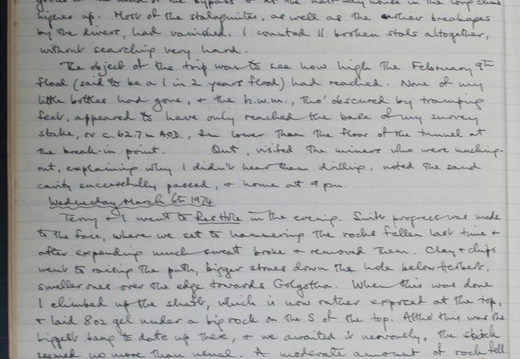 higher up. Most of the stalagmites, as well as the earlier breakages
by the divers, had vanished. I counted 11 broken stals altogether,
without searching very hard.
The object of the trip was to see how high the February 9th
flood (said to be a 1 in 2 years flood) had reached. None of my
little bottles had gone, & the h.w.m., tho' obscured by tramping
feet, appeared to have only reached the base of my survey
stake, or c. 62.7m AOD, lower than the floor of the tunnel at
the break-in point. Out, visited the miners who were mucking-
out, explaining why I didn't hear them drilling, noted the sand
cavity successfully passed, & home at 9 pm.
Wednesday March 6th 1974
Terry & I went to in the evening. Swift progress was made
to the face, where we set to hammering the rocks fallen last time &
after expending much sweat broke & removed them. Clay & chips
went to raising the path, bigger stones down the hole below Herbert,
smaller ones over the edge towards Golgotha. When this was done
I climbed up the shaft, which is now rather exposed at the top,
& laid 8oz gel under a big rock on the S of the top. Altho' this was the
biggest bang to date up there, & we awaited it nervously, the
seemed no more than usual. A moderate amount of rock fell